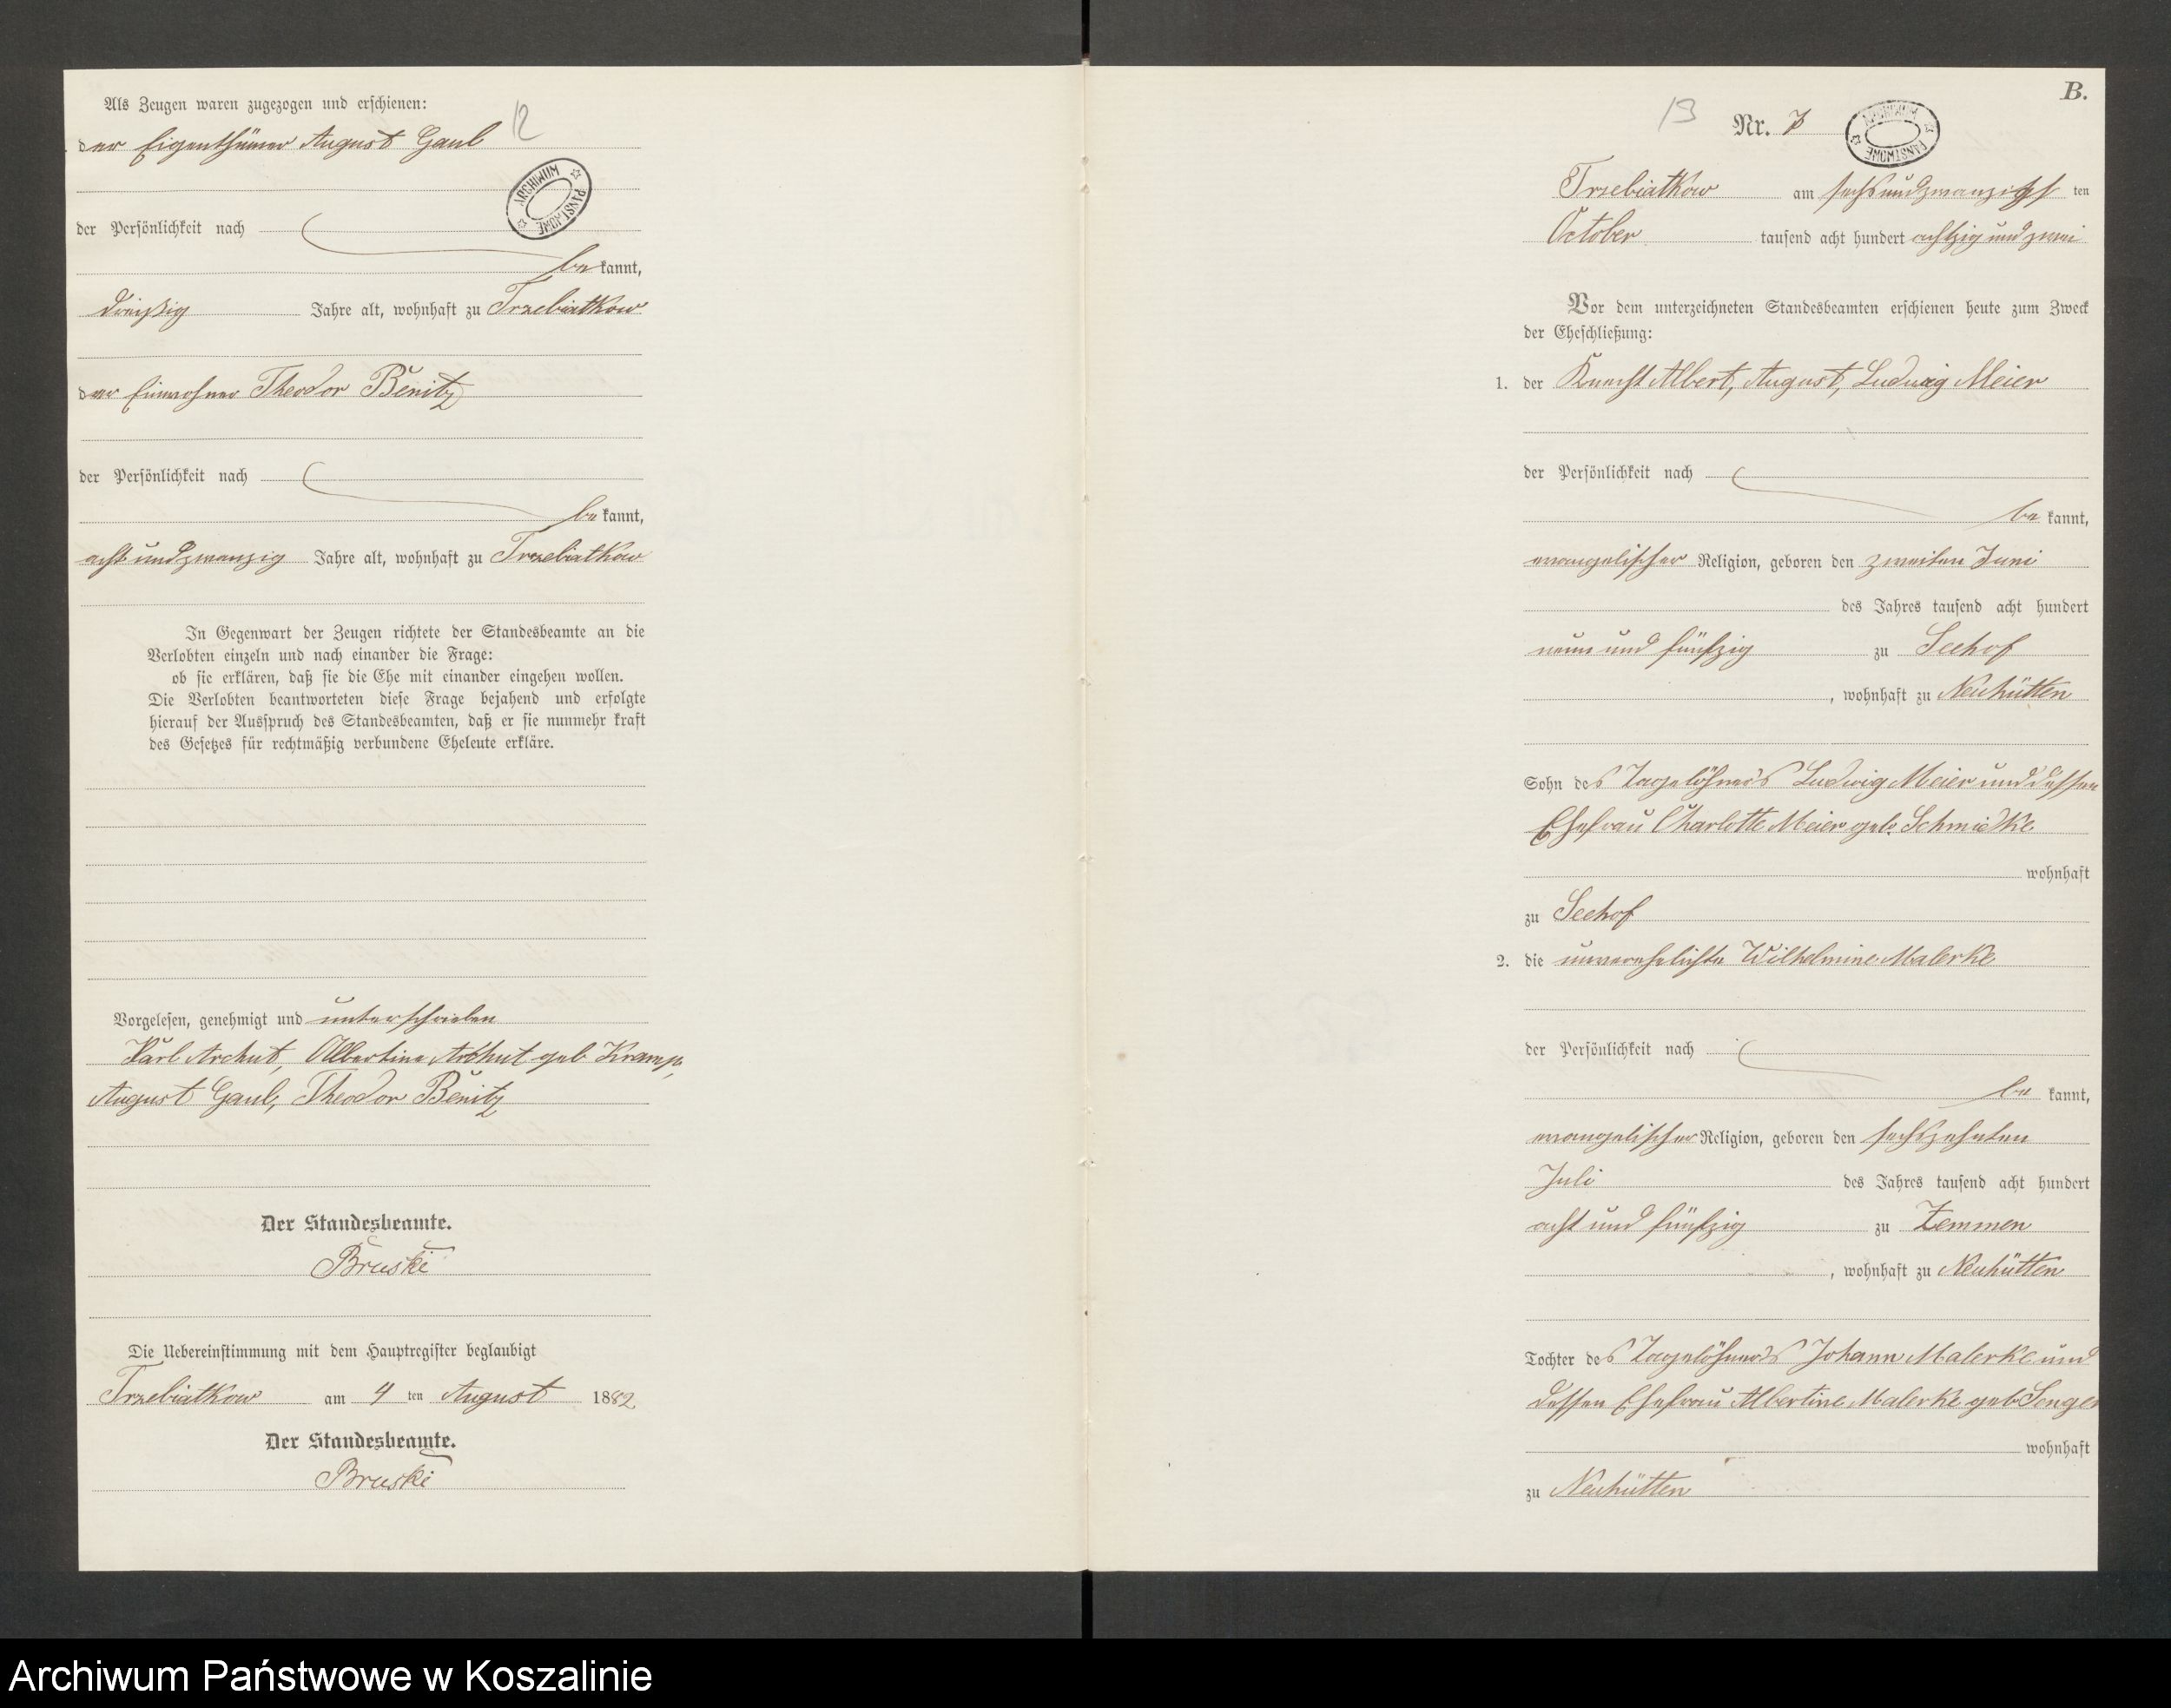 Als Zeugen waren zugezogen und erschienen:
12
der Eigenthümer August Gaul
ARCHIWUM PAŃSTWOWE
der Persönlichkeit nach
bekannt,
dreißig Jahre alt, wohnhaft zu Trzebiatkow
der Einwohner Theodor Benitz
der Persönlichkeit nach
bekannt,
acht und zwanzig Jahre alt, wohnhaft zu Trzebiatkow
In Gegenwart der Zeugen richtete der Standesbeamte an die
Verlobten einzeln und nach einander die Frage:
ob sie erklären, daß sie die Ehe mit einander eingehen wollen.
Die Verlobten beantworteten diese Frage bejahend und erfolgte
hierauf der Ausspruch des Standesbeamten, daß er sie nunmehr kraft
des Gesetzes für rechtmäßig verbundene Eheleute erkläre.
Vorgelesen, genehmigt und unterschrieben
Karl Archut, Albertine Archut geb Kramp,
August Gaul, Theodor Benitz
Der Standesbeamte.
Bruski
Die Uebereinstimmung mit dem Hauptregister beglaubigt
Trzebiatkow am 4 ten August 1882
Der Standesbeamte.
Bruski
B.
13
Nr. 7
ARCHIWUM PAŃSTWOWE
Trzebiatkow am sechsundzwanzigsten
October tausend acht hundert achtzig und zwei
Vor dem unterzeichneten Standesbeamten erschienen heute zum Zweck
der Eheschließung:
1. der Knecht Albert, August, Ludwig Meier
der Persönlichkeit nach
bekannt,
evangelischer Religion, geboren den zweiten Juni
des Jahres tausend acht hundert
neun und fünfzig zu Seehof
, wohnhaft zu Neuhütten
Sohn des Tagelöhners Ludwig Meier und dessen
Ehefrau Charlotte Meier geb. Schmidke
wohnhaft
zu Seehof
2. die unverehelichte Wilhelmine Malerke
der Persönlichkeit nach
bekannt,
evangelischer Religion, geboren den sechszehnten
Juli des Jahres tausend acht hundert
acht und fünfzig zu Zemmen
, wohnhaft zu Neuhütten
Tochter des Tagelöhners Johann Malerke und
dessen Ehefrau Albertine Malerke geb
wohnhaft
zu Neuhütten
Archiwum Państwowe w Koszalinie